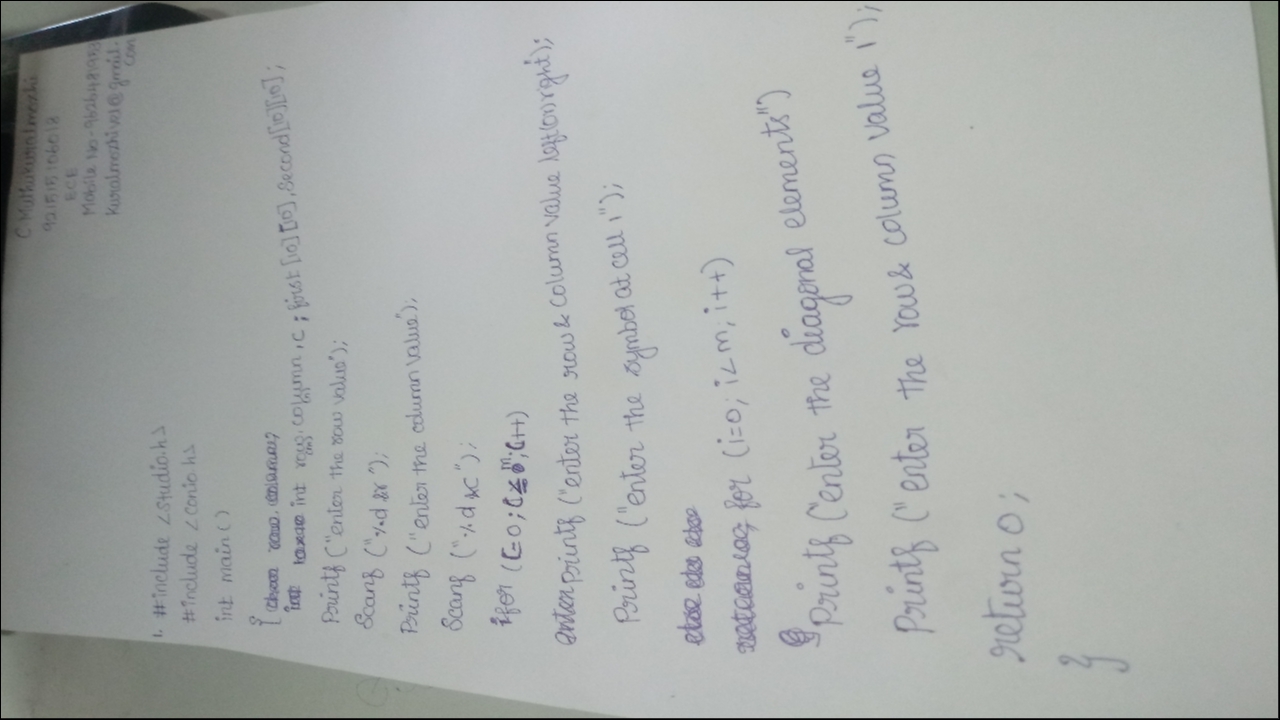 C. Muthukuralmozhi
ECE
Mobile No-
kuralmozhivel@gmail.
com
1. #include <studio.h>
#include <conio.h>
int main()
{
int row, column, c; first [10] [10], second [10] [10];
Printf ("enter the row value");
Scanf ("%d &r");
Printf ("enter the column value");
Scanf ("%d &c");
for (i=0; i≤m; i++)
Printf ("enter the row & column value left (or) right);
Printf ("enter the symbol at cell 1");
for (i=0; i<m; i++)
Printf ("enter the diagonal elements")
Printf ("enter the row & column value 1");
return 0;
}